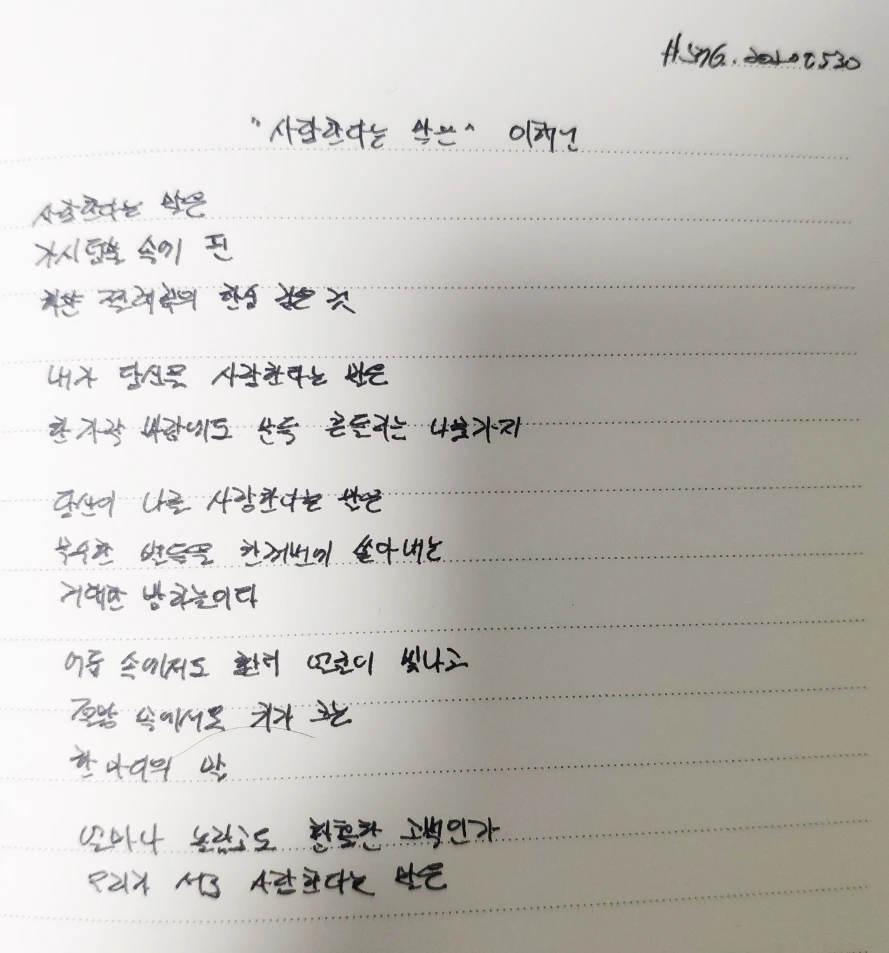 H.SMG. 20210530
"사랑한다는 말은" 이해인
사랑한다는 말은
가시덤불 속에 핀
하얀 찔레꽃의 한숨 같은 것
내가 당신을 사랑한다는 말은
한자락 바람에도 문득 흔들리는 나뭇가지
당신이 나를 사랑한다는 말은
무수한 별들을 한꺼번에 쏟아내는
거대한 밤하늘이다
어둠 속에서도 훤히 얼굴이 빛나고
절망 속에서도 키가 크는
한 마디의 말
얼마나 놀랍고도 황홀한 고백인가
우리가 서로 사랑한다는 말은